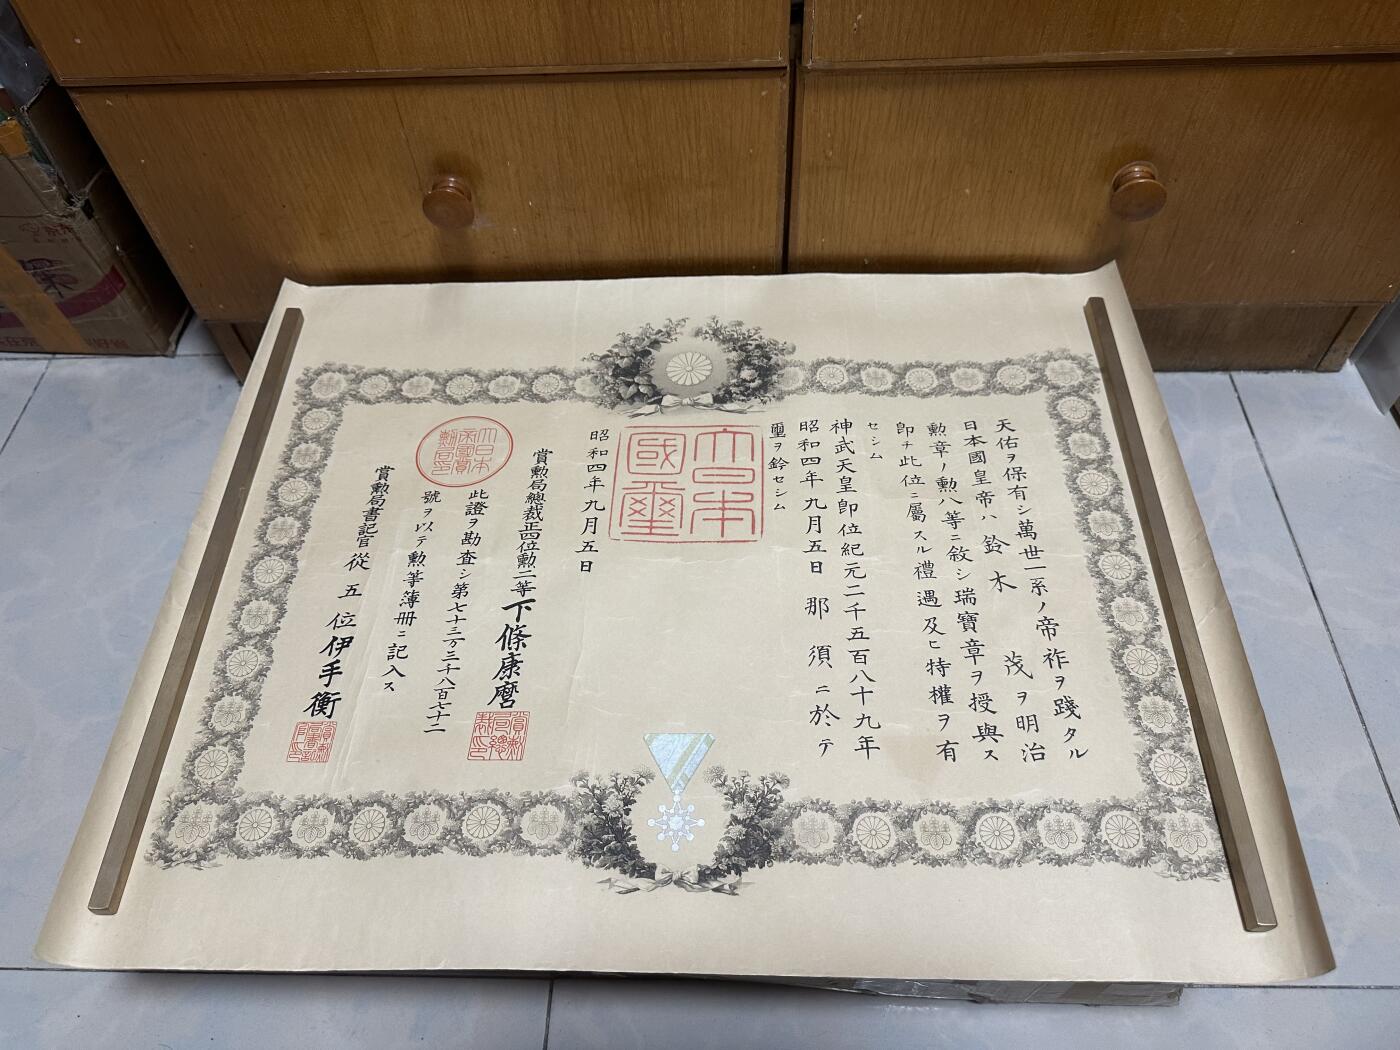 天佑ヲ保有シ萬世一系ノ帝祚ヲ踐タル
日本國皇帝ハ鈴木茂ヲ明治
勲章ノ勲八等ニ敘シ瑞寶章ヲ授與ス
卽チ此位ニ屬スル禮遇及ヒ特權ヲ有
セシム
神武天皇卽位紀元二千五百八十九年
昭和四年九月五日那須ニ於テ
璽ヲ鈐セシム
大日本
國璽
昭和四年九月五日
賞勲局總裁正四位勲二等下條康麿
此證ヲ勘査シ第七十三万三千八百七十二
號ヲ以テ勲等簿冊ニ記入ス
賞勲局書記官從五位伊手衡